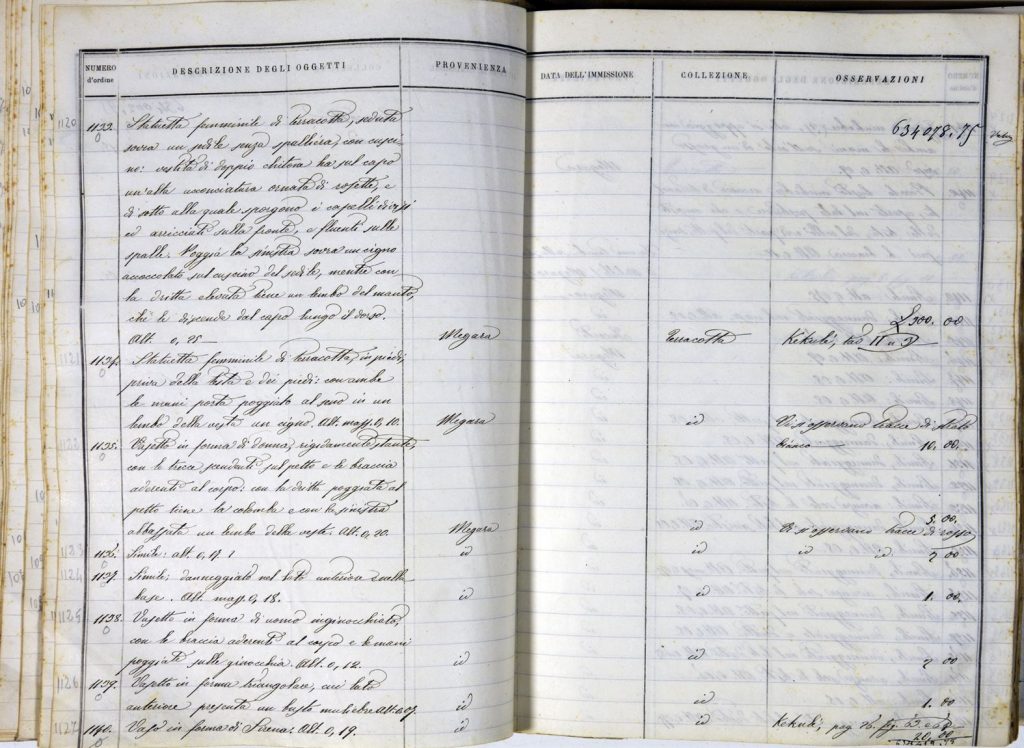 NUMERO d'ordine DESCRIZIONE DEGLI OGGETTI PROVENIENZA DATA DELL'IMMISSIONE COLLEZIONE OSSERVAZIONI
634078.75
1133. Statuetta femminile di terracotta, seduta
sovra un sedile senza spalliera, con cusci-
no: vestita di doppio chitone ha sul capo
un'alta acconciatura ornata di rosette, e
di sotto alla quale sporgono i capelli
ed arricciati sulla fronte, e fluenti sulle
spalle. Poggia la sinistra sovra un cigno
accoccolato sul cuscino del sedile, mentre con
la dritta elevata tiene un lembo del manto,
che le discende dal capo lungo il dorso. £300. 00
Alt. 0,25 Megara Terracotta Kekulé, tav II
1134. Statuetta femminile di terracotta, in piedi,
priva della testa e dei piedi: con ambe
le mani porta poggiato al seno in un
lembo della veste un cigno. Alt. mass. 0,10. Megara id Vi si osservano tracce di
1135. Vasetto in forma di donna, rigidamente stante, bianco 10. 00.
con le trecce scendenti sul petto e le braccia
aderenti al corpo: con la dritta poggiata al
petto tiene la colomba e con la sinistra 5. 00.
abbassata un lembo della veste. Alt. 0,20. Megara id Vi si osservano tracce di rosso
1136. Simile: alt. 0,17. id id id id 2 00
1137. Simile; danneggiato nel lato anteriore e nella
base. Alt. mass. 0,18. id id 1. 00.
1138. Vasetto in forma di uomo inginocchiato,
con le braccia aderenti al corpo e le mani
poggiate sulle ginocchia. Alt. 0,12. id id 2 00
1139. Vasetto in forma triangolare, cui lato
anteriore presenta un busto muliebre Alt. 0,07. id id 1. 00
1140. Vaso in forma di Sirena. Alt. 0,19. id id Kekulé, pag
20. 00
1120
1123
1124
1125
1126
1127